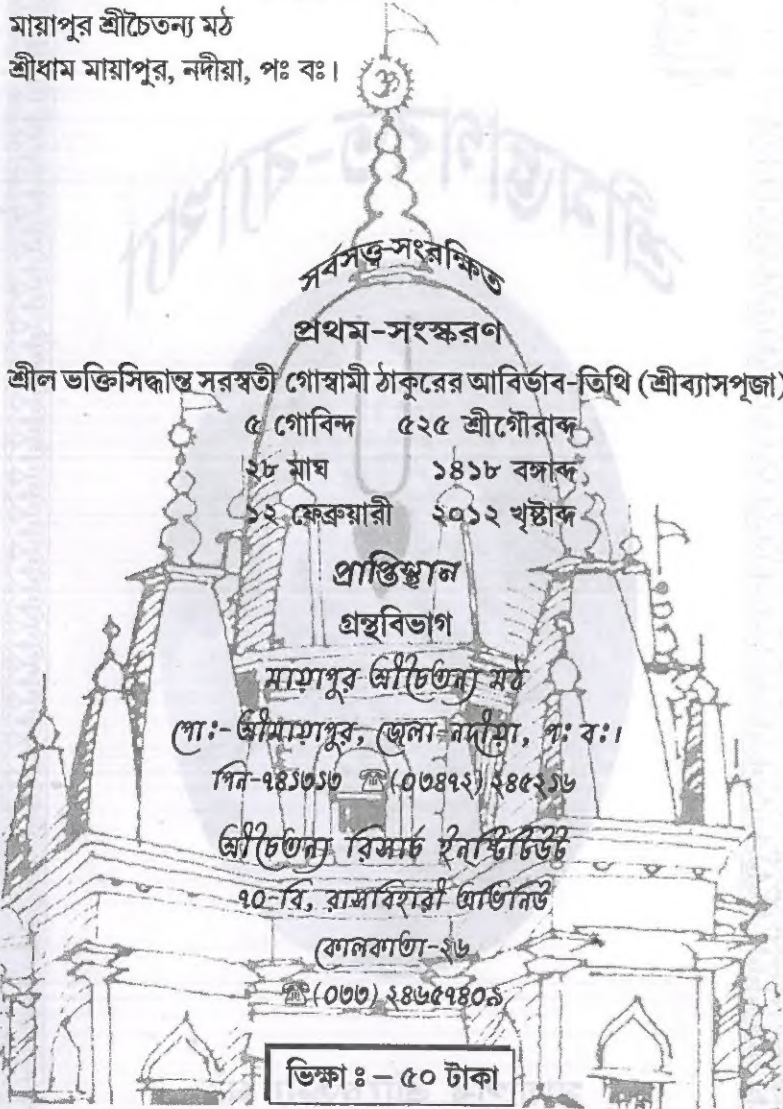 মায়াপুর শ্রীচৈতন্য মঠ
শ্রীধাম মায়াপুর, নদীয়া, পঃ বঃ।
ওঁ
সর্বসত্ত্ব-সংরক্ষিত
প্রথম-সংস্করণ
শ্রীল ভক্তিসিদ্ধান্ত সরস্বতী গোস্বামী ঠাকুরের আবির্ভাব-তিথি (শ্রীব্যাসপূজা)
৫ গোবিন্দ ৫২৫ শ্রীগৌরাব্দ
২৮ মাঘ ১৪১৮ বঙ্গাব্দ
১২ ফেব্রুয়ারী ২০১২ খৃষ্টাব্দ
প্রাপ্তিস্থান
গ্রন্থবিভাগ
মায়াপুর শ্রীচৈতন্য মঠ
পো:-শ্রীমায়াপুর, জেলা-নদীয়া, প: ব:।
পিন-৭৪১৩১৩ ☎(০৩৪৭২) ২৪৫২১৬
শ্রীচৈতন্য রিসার্চ ইনষ্টিটিউট
৭০-বি, রাসবিহারী অ্যাভিনিউ
কোলকাতা-২৬
☎(০৩৩) ২৪৬৫৭৪০৯
ভিক্ষা ঃ – ৫০ টাকা